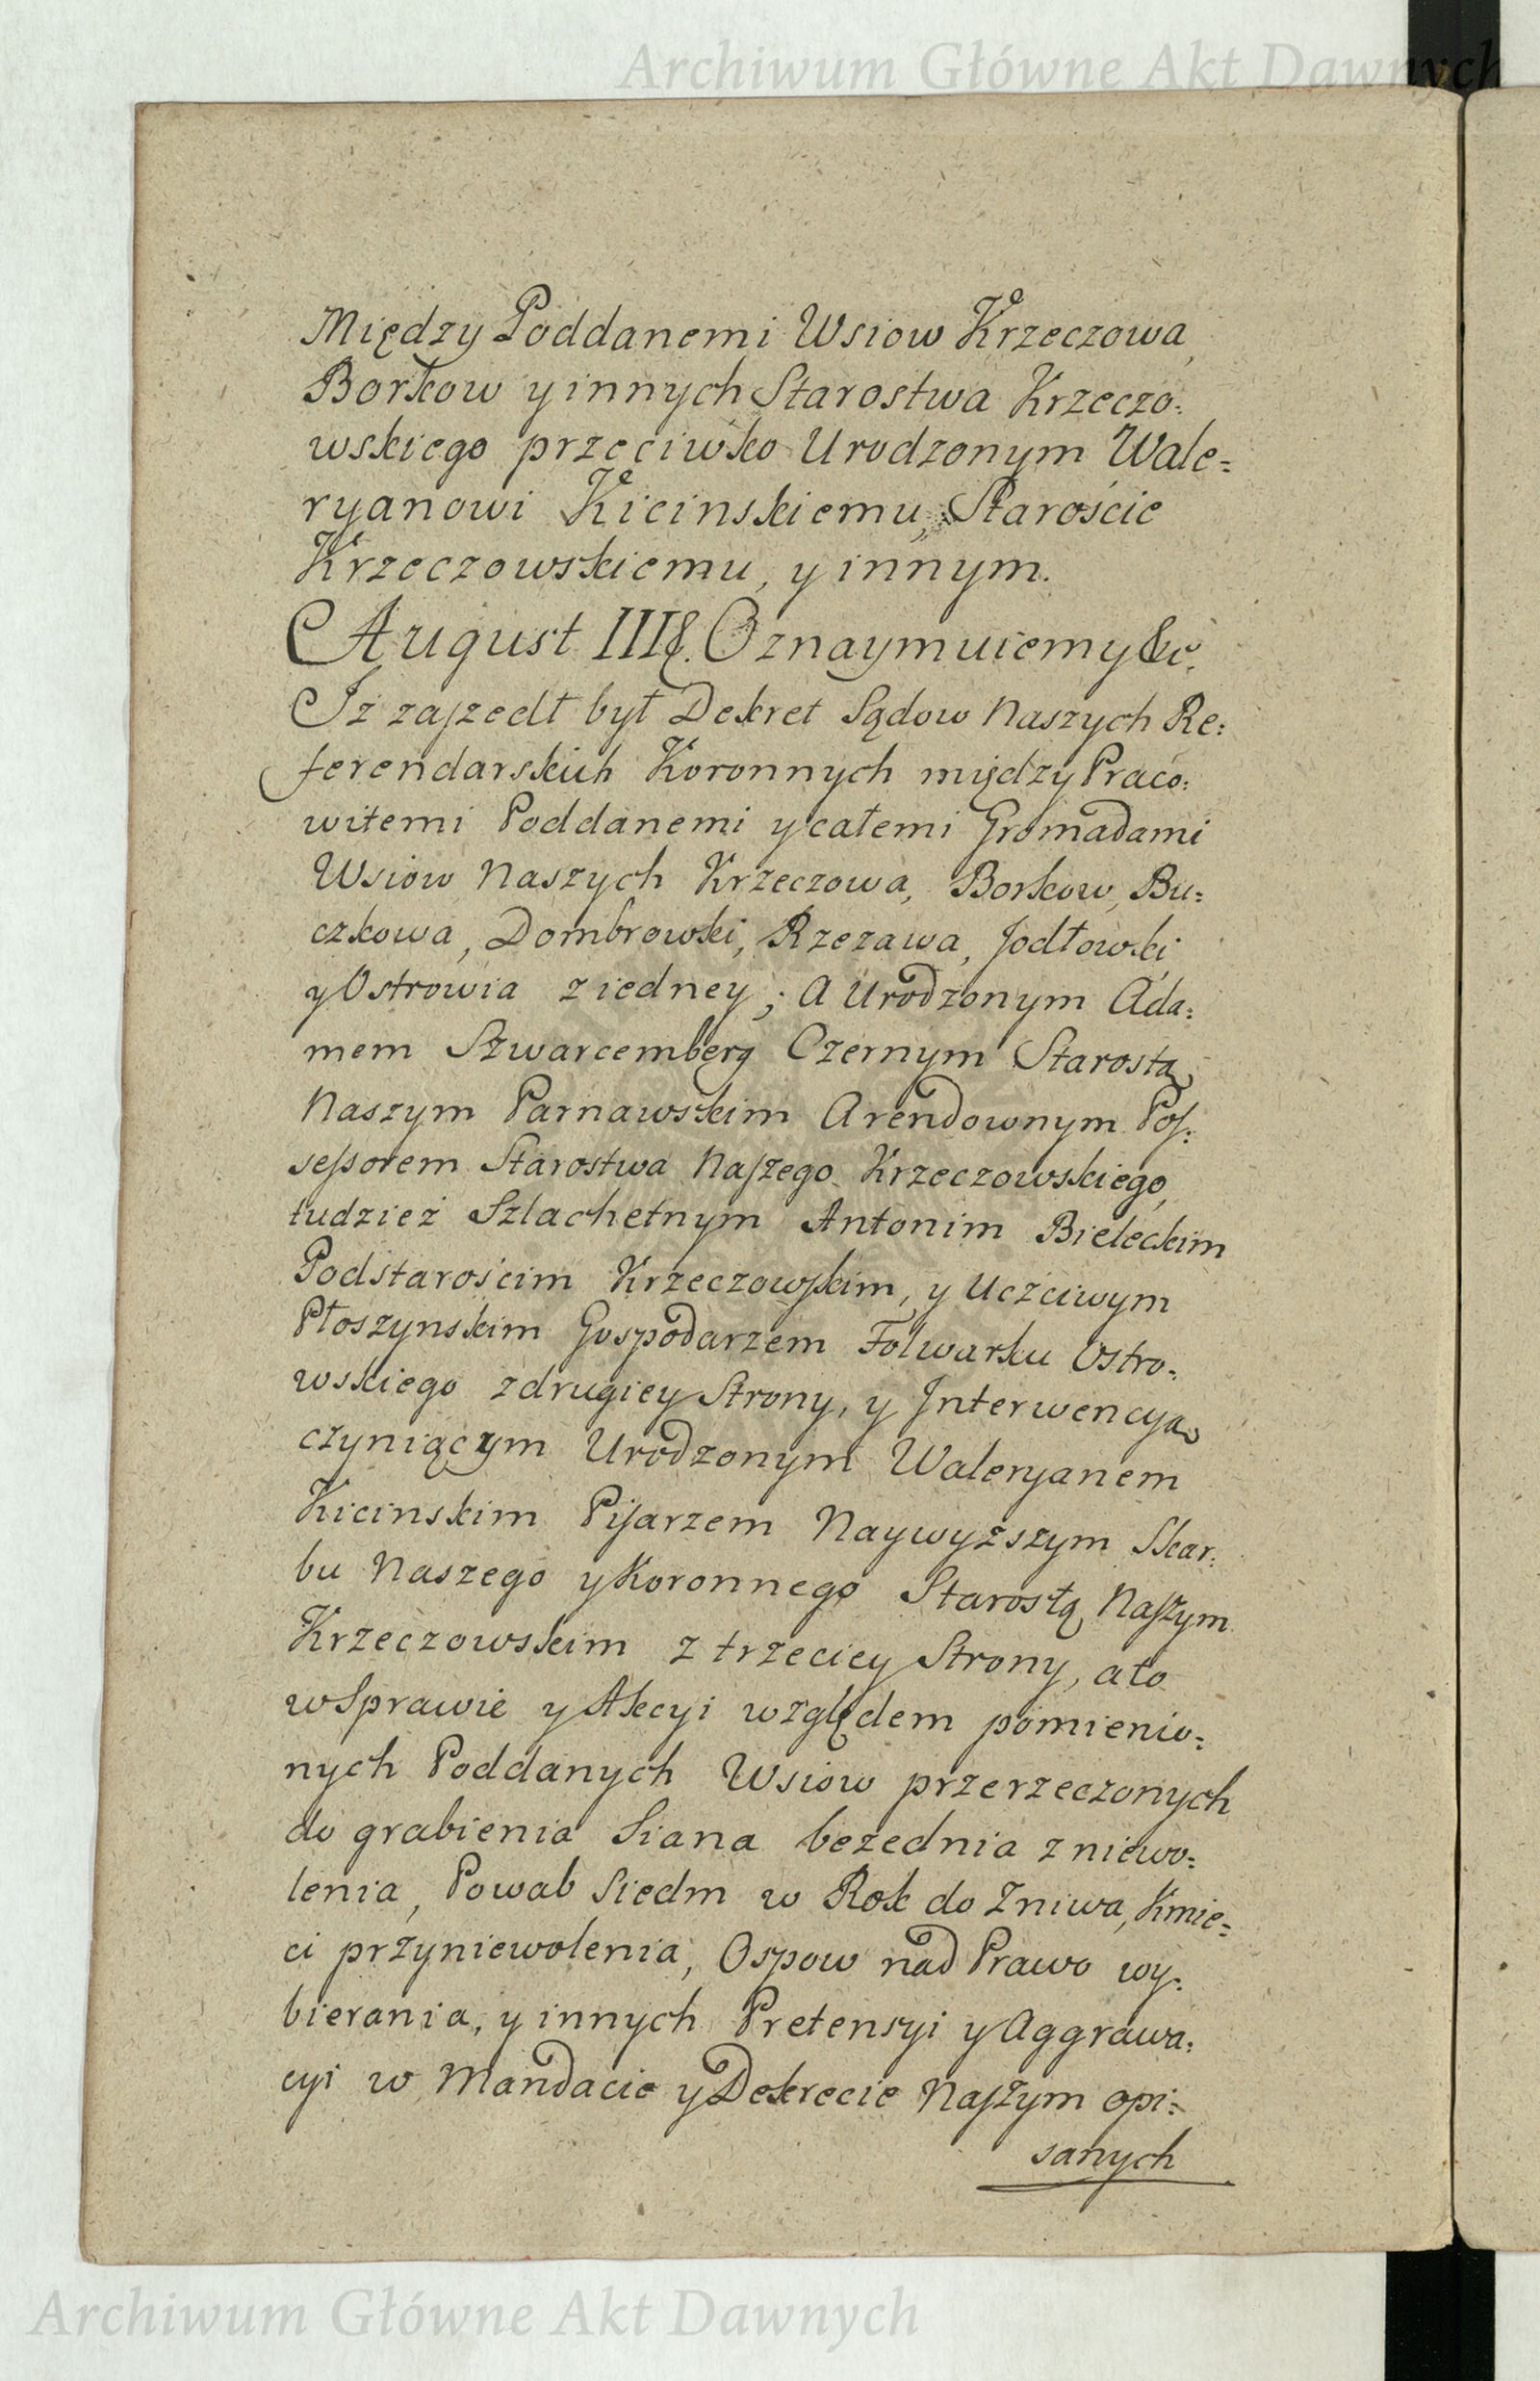 Archiwum Główne Akt Dawnych
Między Poddanemi Wsiow Krzeczowa,
Borkow y innych Starostwa Krzeczo:
wskiego przeciwko Urodzonym Wale=
ryanowi Kicinskiemu, Starościе
Krzeczowskiemu, y innym.
August III &. Oznaymuiemy &c.
Iz zaszedł był Dekret Sądow Naszych Re:
ferendarskich Koronnych między Praco:
witemi Poddanemi y całemi Gromadami
Wsiow Naszych Krzeczowa, Borkow, Bu:
czkowa, Dombrowki, Rzezawa, Jodłowki
y Ostrowia z iedney; A Urodzonym Ada:
mem Szwarcemberg Czernym Starostą
Naszym Parnawskim Arendownym Pos:
sessorem Starostwa Naszego Krzeczowskiego,
tudzież Szlachetnym Antonim Bieleckim
Podstarościm Krzeczowskim, y Uczciwym
Płoszynskim Gospodarzem Folwarku Ostro:
wskiego z drugiey Strony, y Interwencyą
czyniącym Urodzonym Waleryanem
Kicinskim Pisarzem Naywyższym Skar:
bu Naszego y Koronnego Starostą Naszym
Krzeczowskim z trzeciey Strony, a to
w Sprawie y Akcyi względem pomienio:
nych Poddanych Wsiow przerzeczonych
do grabienia Siana bezednia zniewo=
lenia, Powab Siedm w Rok do Zniwa, Kmie=
ci przyniewolenia, Ospow nad Prawo wy:
bierania, y innych Pretensyi y Aggrawa:
cyi w Mandacie y Dekrecie Naszym opi:
sanych
Archiwum Główne Akt Dawnych